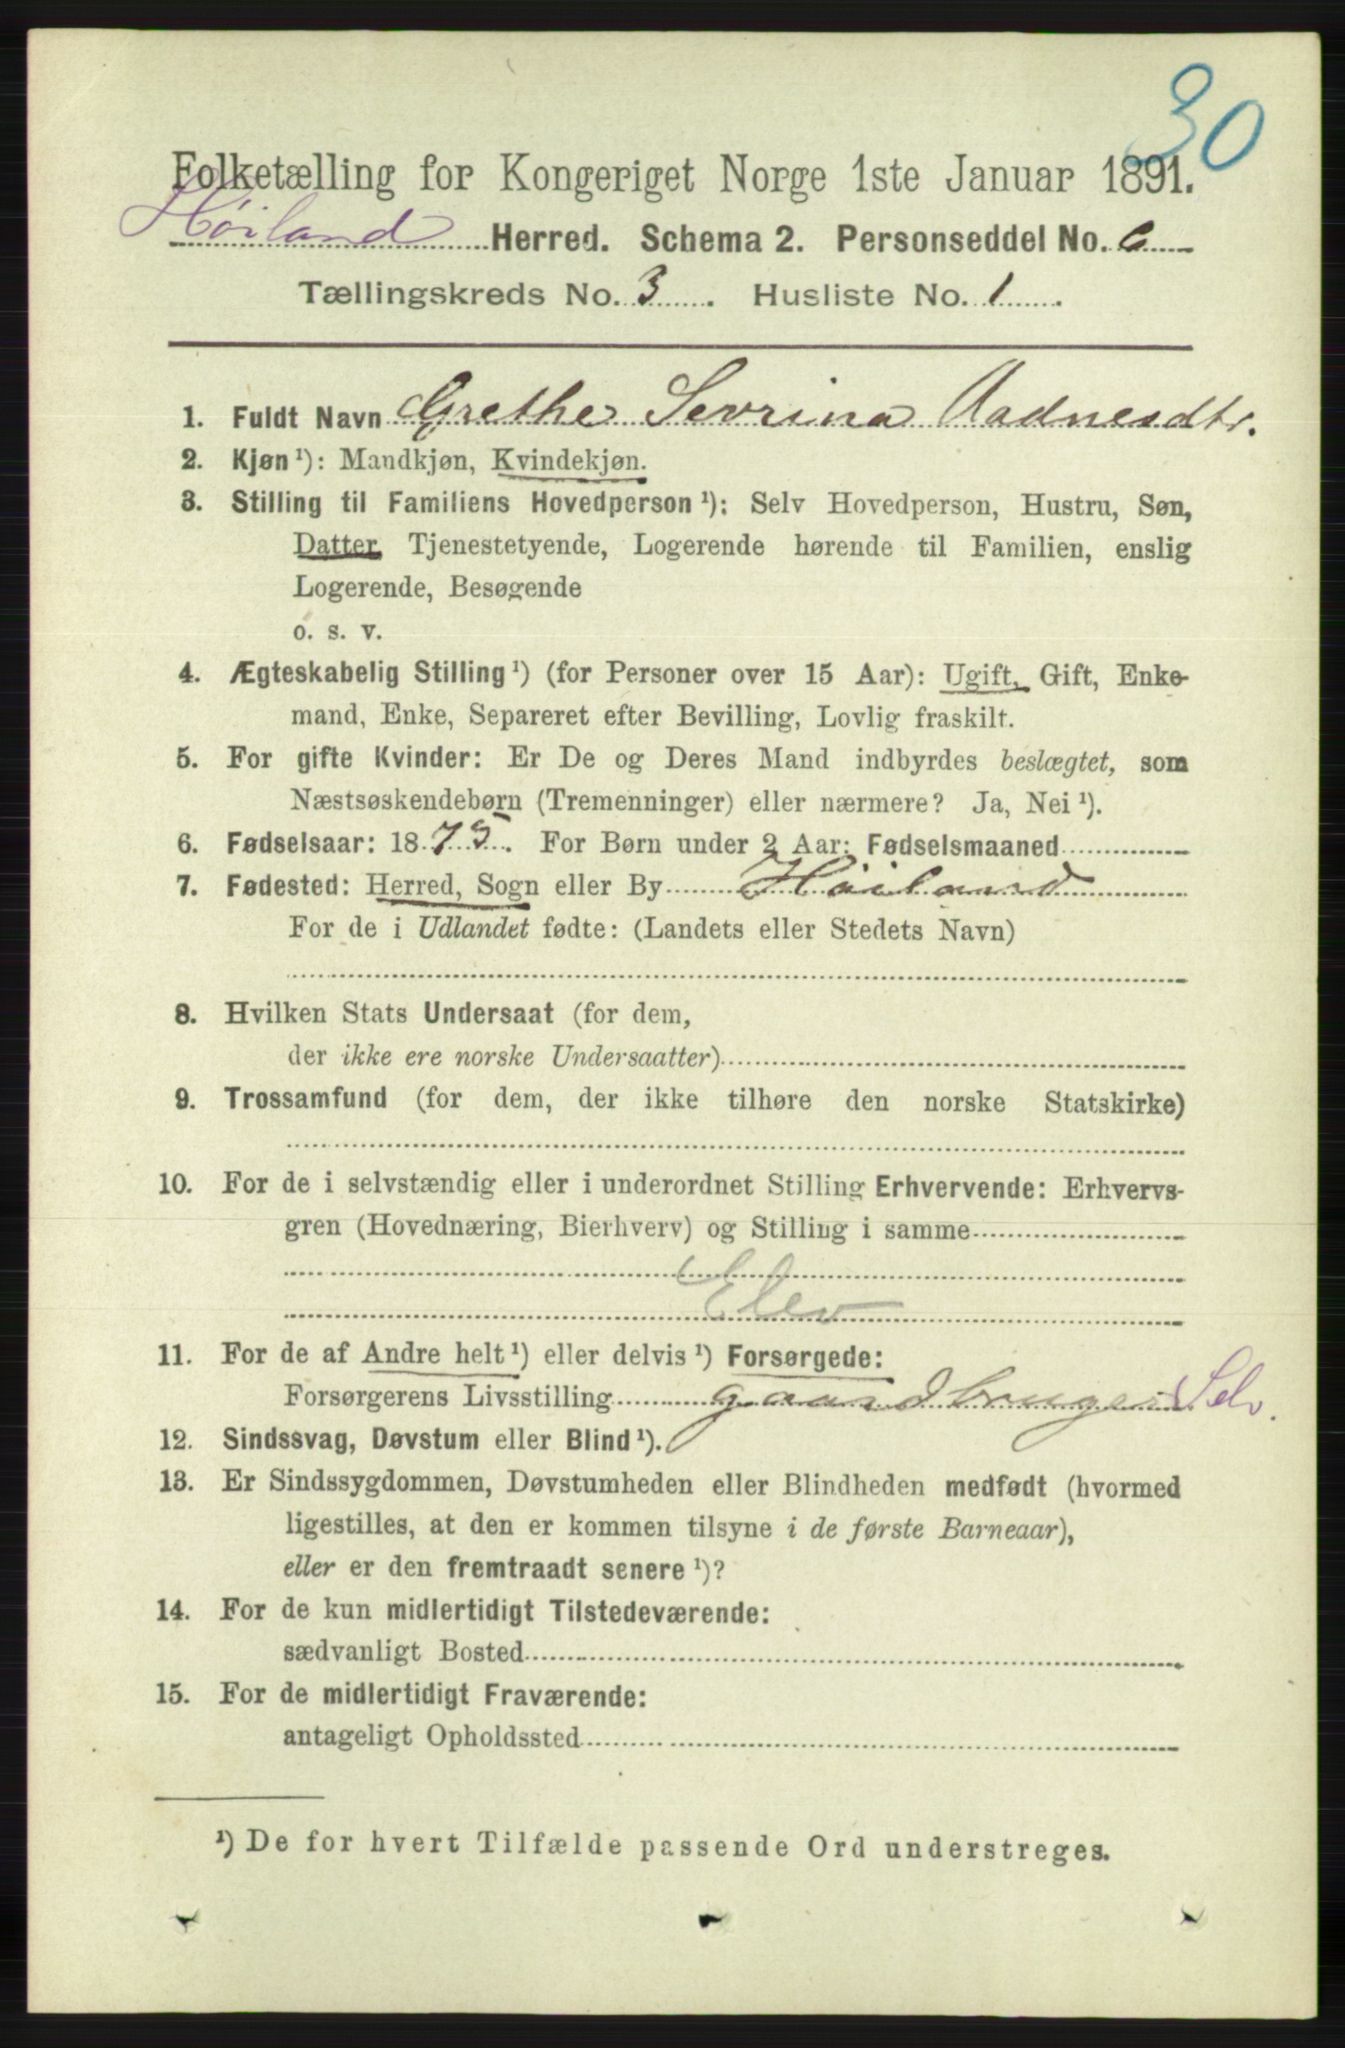 30
Folketælling for Kongeriget Norge 1ste Januar 1891.
Høiland Herred. Schema 2. Personseddel No. 6
Tællingskreds No. 3. Husliste No. 1.
1. Fuldt Navn Grethe Sevrina Aadnesdtr.
2. Kjøn¹): Mandkjøn, Kvindekjøn.
3. Stilling til Familiens Hovedperson¹): Selv Hovedperson, Hustru, Søn,
Datter, Tjenestetyende, Logerende hørende til Familien, enslig
Logerende, Besøgende
o. s. v.
4. Ægteskabelig Stilling¹) (for Personer over 15 Aar): Ugift, Gift, Enke-
mand, Enke, Separeret efter Bevilling, Lovlig fraskilt.
5. For gifte Kvinder: Er De og Deres Mand indbyrdes beslægtet, som
Næstsøskendebørn (Tremenninger) eller nærmere? Ja, Nei¹).
6. Fødselsaar: 1875. For Børn under 2 Aar: Fødselsmaaned
7. Fødested: Herred, Sogn eller By Høiland
For de i Udlandet fødte: (Landets eller Stedets Navn)
8. Hvilken Stats Undersaat (for dem,
der ikke ere norske Undersaatter)
9. Trossamfund (for dem, der ikke tilhøre den norske Statskirke)
10. For de i selvstændig eller i underordnet Stilling Erhvervende: Erhvervs-
gren (Hovednæring, Bierhverv) og Stilling i samme
Elev
11. For de af Andre helt¹) eller delvis¹) Forsørgede:
Forsørgerens Livsstilling gaardbruger Selv.
12. Sindssvag, Døvstum eller Blind¹).
13. Er Sindssygdommen, Døvstumheden eller Blindheden medfødt (hvormed
ligestilles, at den er kommen tilsyne i de første Barneaar),
eller er den fremtraadt senere¹)?
14. For de kun midlertidigt Tilstedeværende:
sædvanligt Bosted
15. For de midlertidigt Fraværende:
antageligt Opholdssted
¹) De for hvert Tilfælde passende Ord understreges.